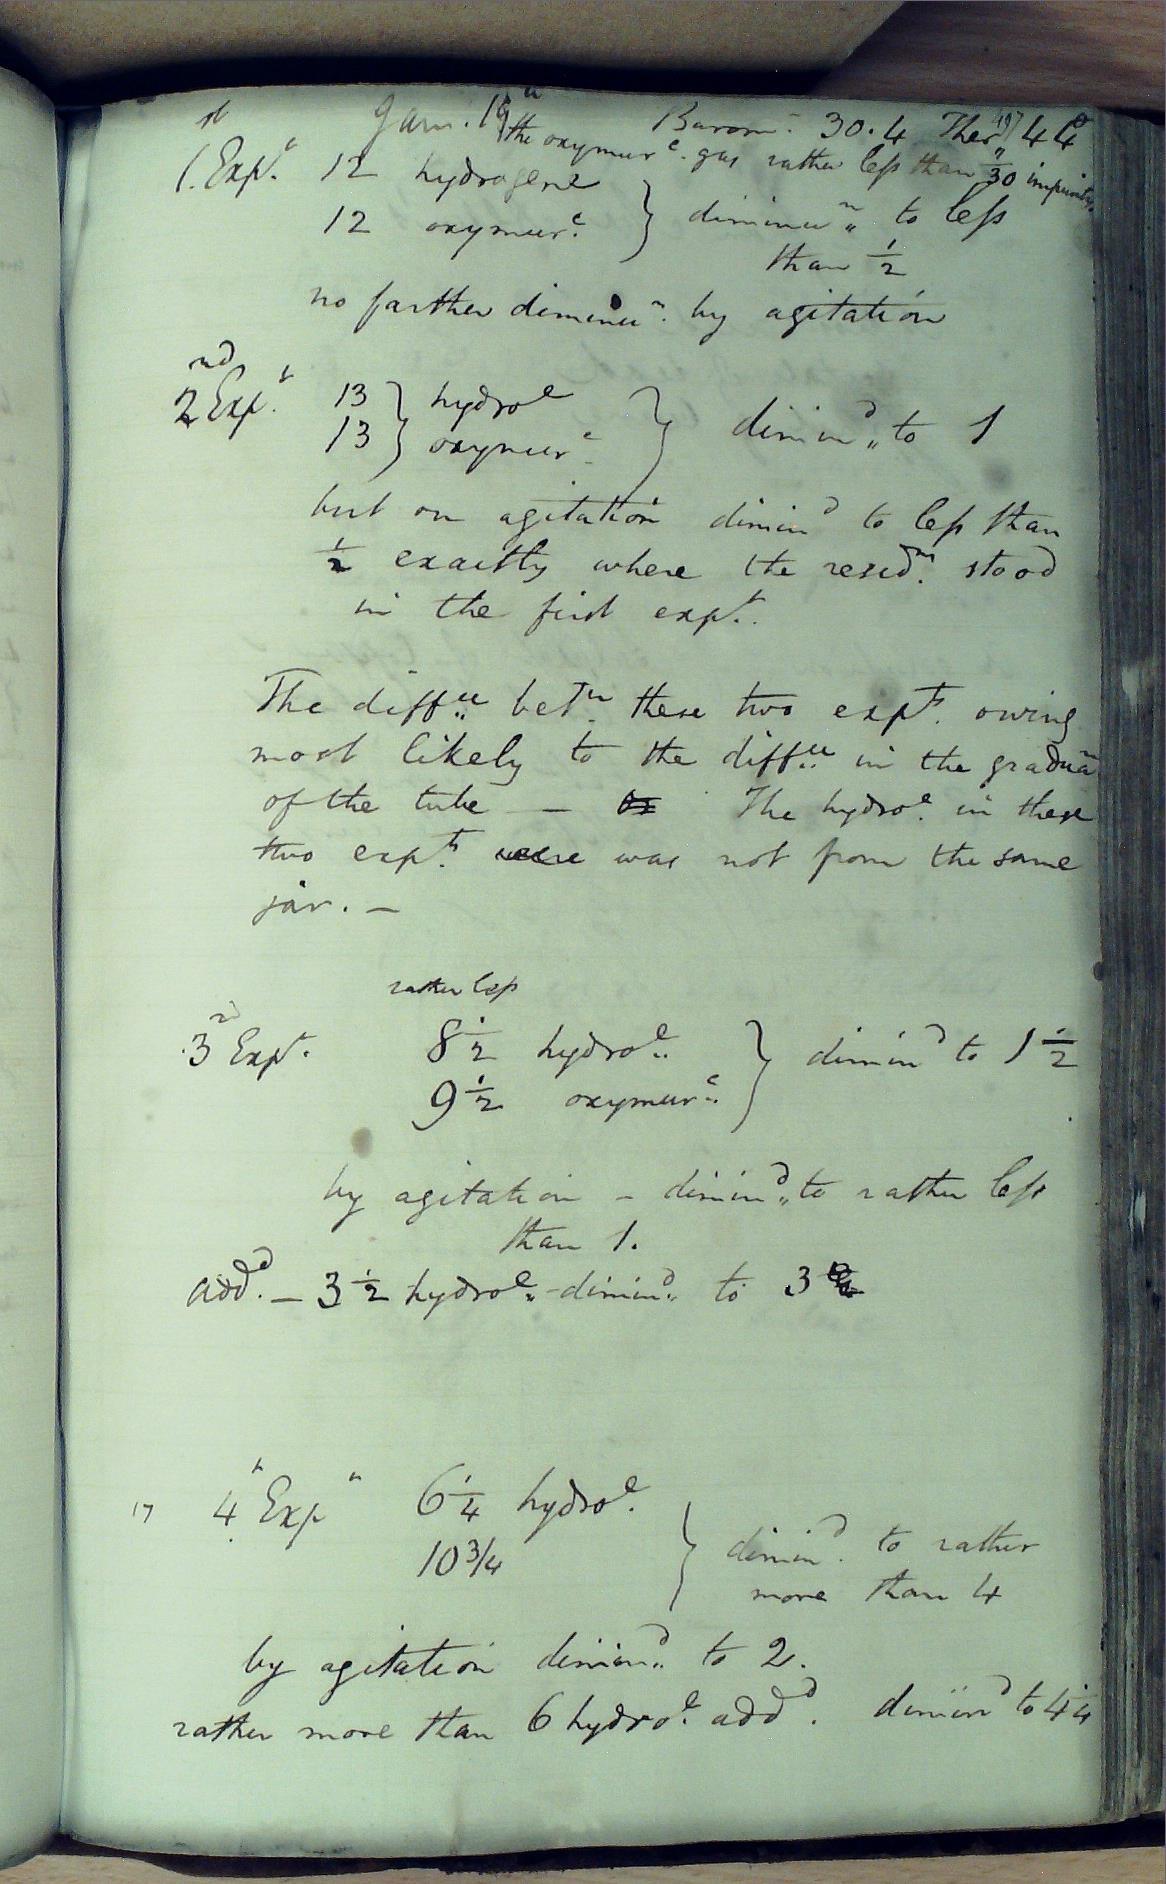 Jan. 19th Barom: 30.4 Ther 49 46
the oxymurc. gas rather less than 1/30 impurity
1st. Expt. 12 hydrogene
12 oxymurc. } diminun to less
than 1/2
no farther diminun. by agitation
2nd Expt. 13 } hydroe
13 } oxymurc } dimind to 1
but on agitation dimind to less than
1/2 exactly where the residm. stood
in the first expt.
The diffce betwn these two expts. owing
most likely to the diffce in the graduan
of the tube — The hydroe. in these
two expts. were was not from the same
jar. —
rather less
3rd Expt. 8 1/2 hydroe.
9 1/2 oxymurc. } dimind to 1 1/2
by agitation – dimind to rather less
than 1.
addd. – 3 1/2 hydroe. – dimind to 3
17 4th Expt 6 1/4 hydroe.
10 3/4 } dimind. to rather
more than 4
by agitation dimind. to 2.
rather more than 6 hydroe. addd. dimind to 4 1/4